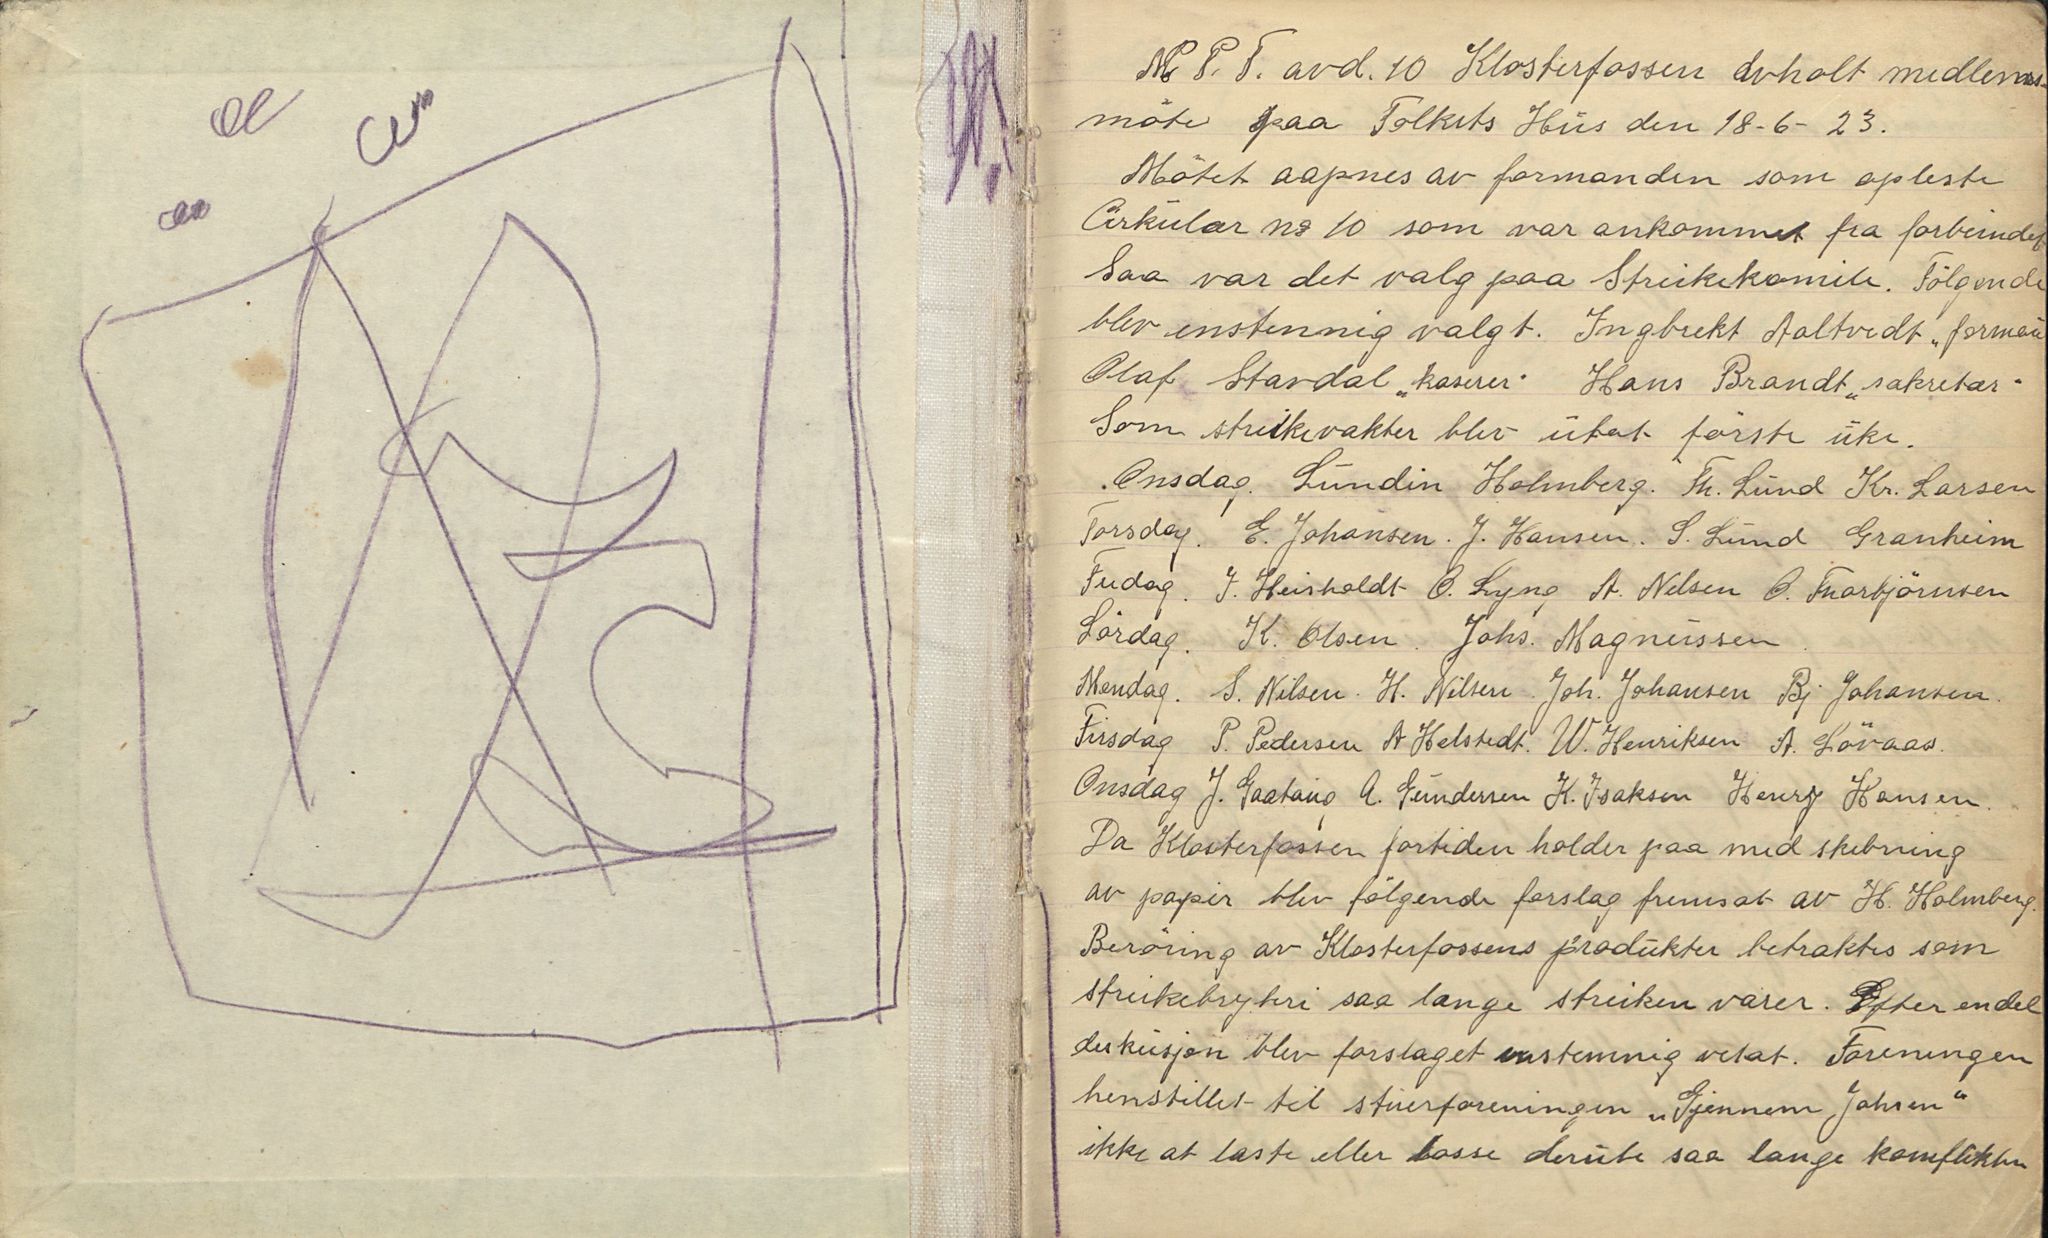 N. P. F. avd. 10 Klosterfossen avholt medlems-
möte paa Folkets Hüs den 18-6-23.
Mötet aapnes av formanden som opleste
Cirkülær no 10 som var ankommet fra forbündet
Saa var det valg paa Streikekomite. Fölgende
blev enstemmig valgt. Ingbrekt Aaltvedt „forman
Olaf Stavdal „kaserer" Hans Brandt „sekretær"
Som streikevakter blev ütat förste üke.
Onsdag. Lündin Holmberg. Th. Lünd Kr. Larsen
Torsdag. E. Johansen. J. Hansen. S. Lünd Granheim
Fredag. J. Heisholdt O. Lyng A. Nilsen O. Thorbjörnsen
Lördag. K. Olsen. Johs. Magnüssen.
Mandag. S. Nilsen. H. Nilsen. Joh. Johansen Bj Johansen.
Tirsdag P. Pedersen A Helstedt. W. Henriksen A. Lövaas.
Onsdag J. Gaataüg A. Gündersen K. Isaksen Henry Hansen.
Da Klosterfossen fortiden holder paa med skebning
av papir blev fölgende forslag fremsat av H. Holmberg.
Beröring av Klosterfossens prodükter betraktes som
streikebryteri saa lange streiken varer. Efter endel
disküsjon blev forslaget enstemmig vetat. Foreningen
henstillet til stüerforeningen „Gjennem Johsen"
ikke at laste eller losse derüte saa lange konflikten